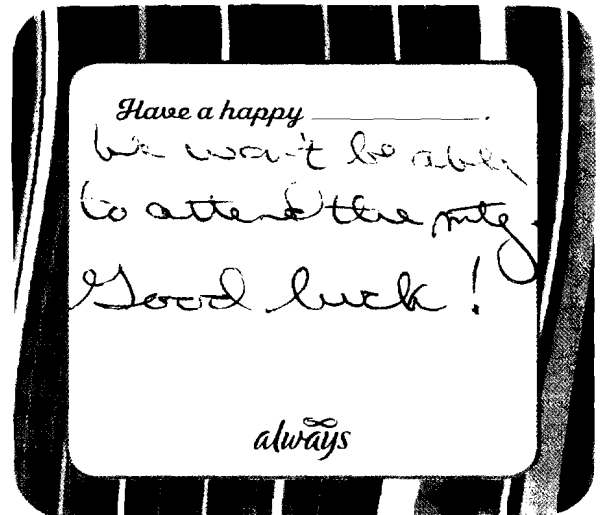 Have a happy __________.
We won't be able
to attend the mtg.
Good luck!
always